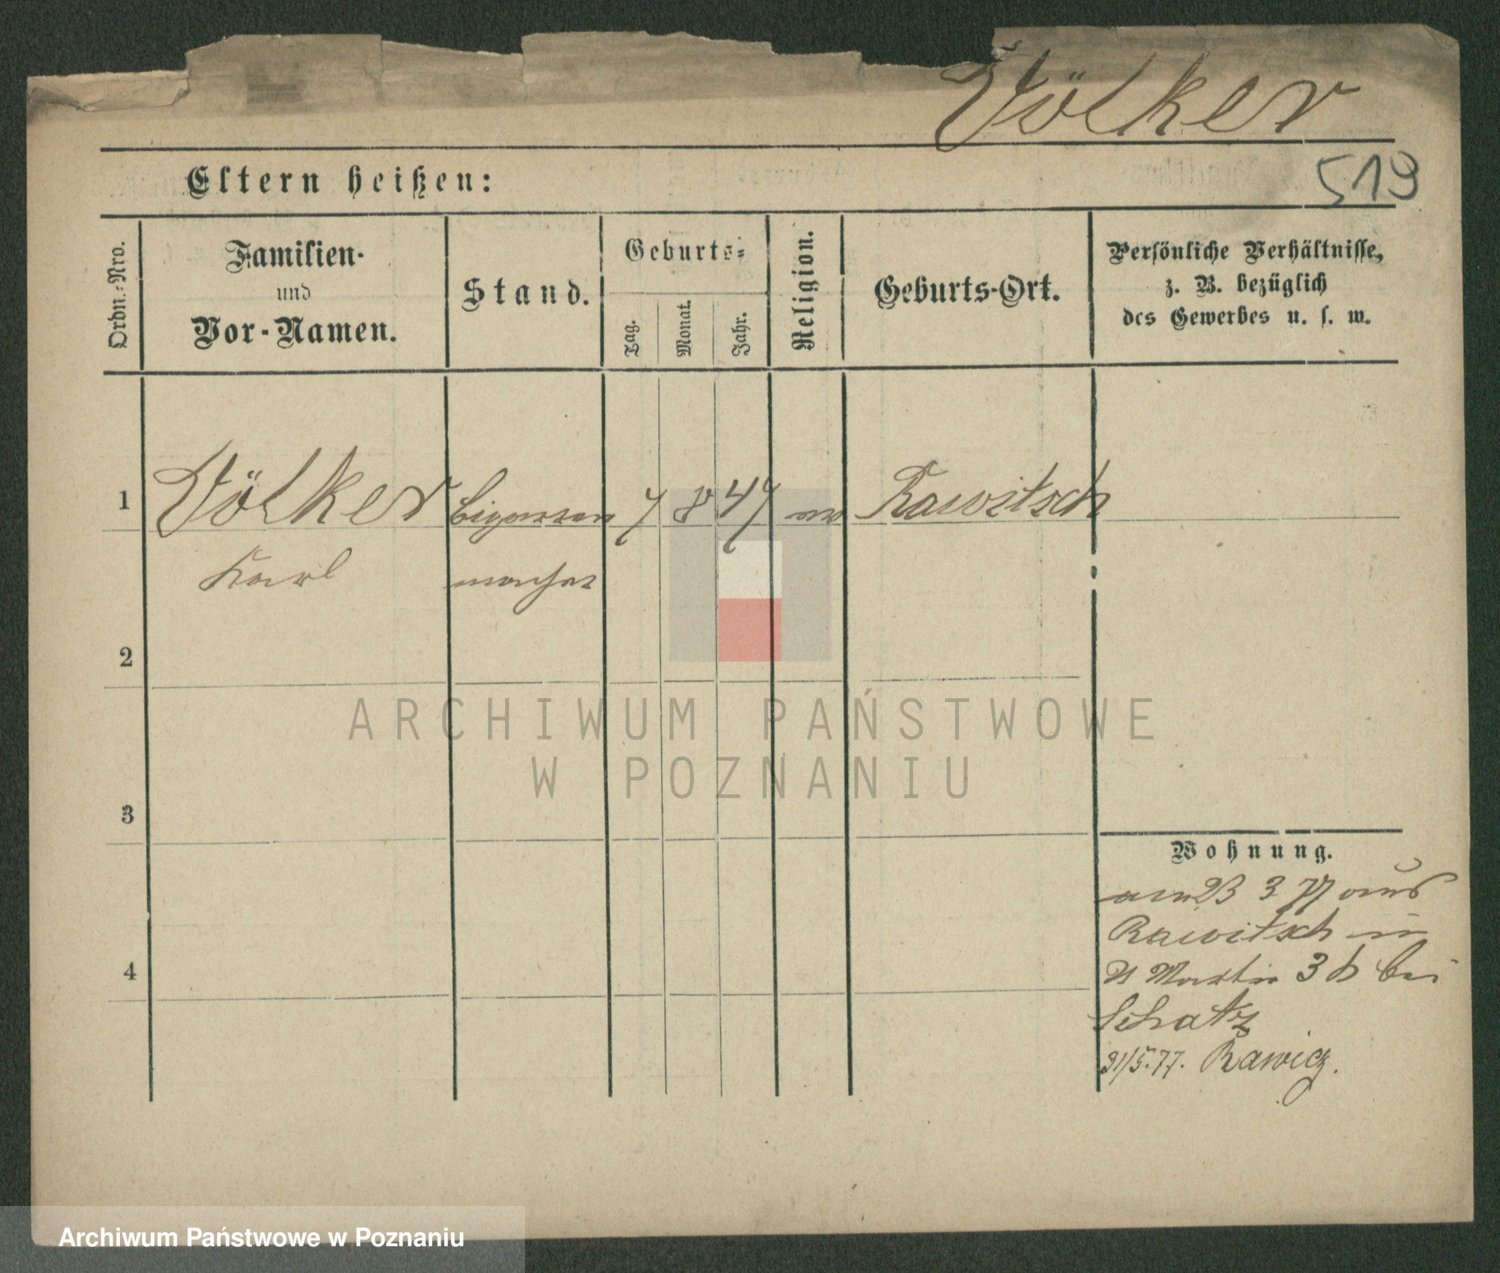 Völker
519
Eltern heißen:
Ordn.=Nro.
Familien-
und
Vor-Namen.
Stand.
Geburts=
Tag.
Monat.
Jahr.
Religion.
Geburts-Ort.
Persönliche Verhältnisse,
z. B. bezüglich
des Gewerbes u. s. w.
1
Völker Cigarren 7 8 47 ev Rawitsch
Karl macher
2
ARCHIWUM PAŃSTWOWE
W POZNANIU
3
Wohnung.
am 23 3 77 aus
Rawitsch in
4
St Martin 36 bei
Schatz
31/5.77. Rawicz.
Archiwum Państwowe w Poznaniu